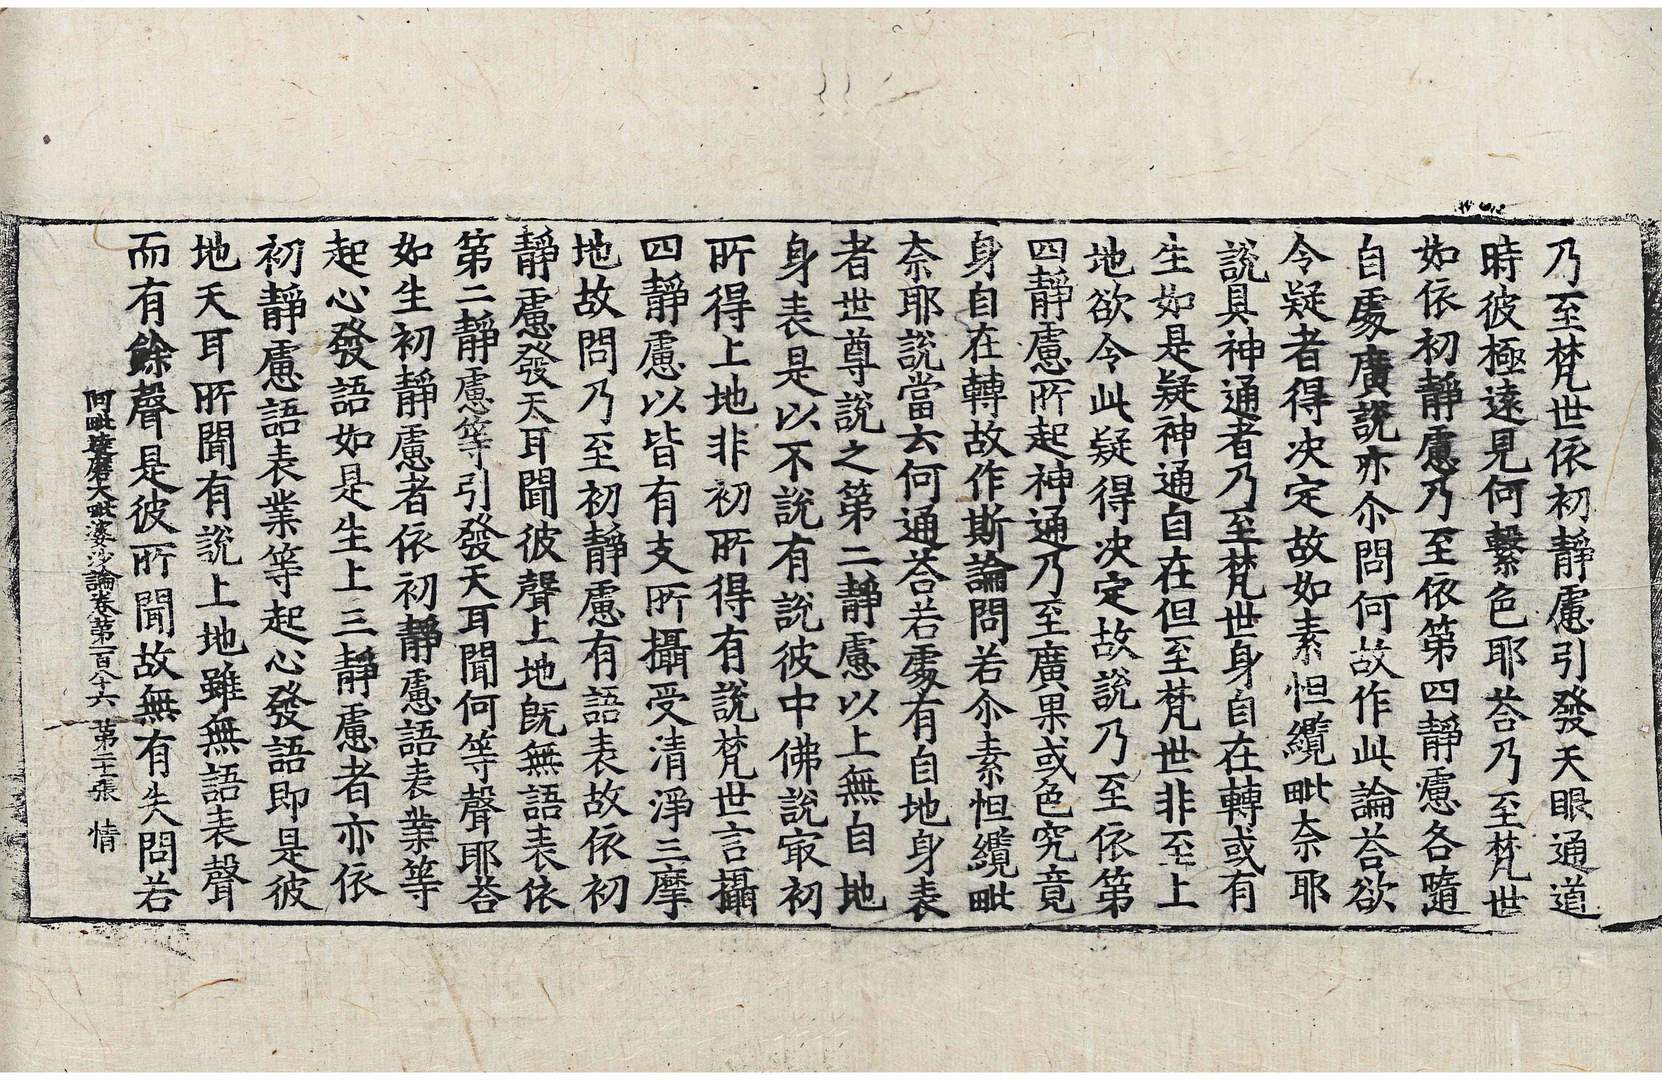 乃至梵世依初靜慮引發天眼通道
時彼極遠見何繫色耶荅乃至梵世
如依初靜慮乃至依第四靜慮各隨
自處廣說亦尒問何故作此論荅欲
令疑者得决定故如素怛纜毗奈耶
說具神通者乃至梵世身自在轉或有
生如是疑神通自在但至梵世非至上
地欲令此疑得决定故說乃至依第
四靜慮所起神通乃至廣果或色究竟
身自在轉故作斯論問若尒素怛纜毗
奈耶說當云何通荅若處有自地身表
者世尊說之第二靜慮以上無自地
身表是以不說有說彼中佛說㝡初
所得上地非初所得有說梵世言攝
四靜慮以皆有支所攝受清淨三摩
地故問乃至初靜慮有語表故依初
靜慮發天耳聞彼聲上地旣無語表依
第二靜慮等引發天耳聞何等聲耶荅
如生初靜慮者依初靜慮語表業等
起心發語如是生上三靜慮者亦依
初靜慮語表業等起心發語即是彼
地天耳所聞有說上地雖無語表聲
而有餘聲是彼所聞故無有失問若
阿毗達磨大毗婆沙論卷第一百八十六 第二十張 情